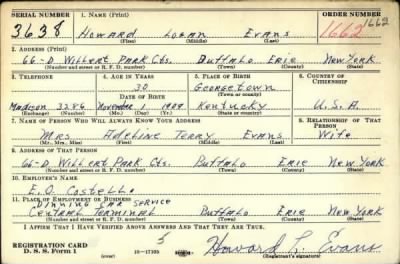 SERIAL NUMBER 1. NAME (Print) ORDER NUMBER
3638 Howard Logan Evans 1662 1662
(First) (Middle) (Last)
2. ADDRESS (Print)
66-D Willert Park Cts. Buffalo Erie New York
(Number and street or R. F. D. number) (Town) (County) (State)
3. TELEPHONE 4. AGE IN YEARS 5. PLACE OF BIRTH 6. COUNTRY OF CITIZENSHIP
30 Georgetown
DATE OF BIRTH (Town or county)
Madison 3286 November 1 1909 Kentucky U.S.A.
(Exchange) (Number) (Mo.) (Day) (Yr.) (State or country)
7. NAME OF PERSON WHO WILL ALWAYS KNOW YOUR ADDRESS 8. RELATIONSHIP OF THAT PERSON
Mrs Adeline Terry Evans Wife
(Mr., Mrs., Miss) (First) (Middle) (Last)
9. ADDRESS OF THAT PERSON
66-D Willert Park Cts. Buffalo Erie New York
(Number and street or R. F. D. number) (Town) (County) (State)
10. EMPLOYER'S NAME
E.O. Costello
11. PLACE OF EMPLOYMENT OR BUSINESS
Dinning Car Service
Central Terminal Buffalo Erie New York
(Number and street or R. F. D. number) (Town) (County) (State)
I AFFIRM THAT I HAVE VERIFIED ABOVE ANSWERS AND THAT THEY ARE TRUE.
REGISTRATION CARD
D. S. S. Form 1 (over) 16-17105 Howard L. Evans
(Registrant's signature)